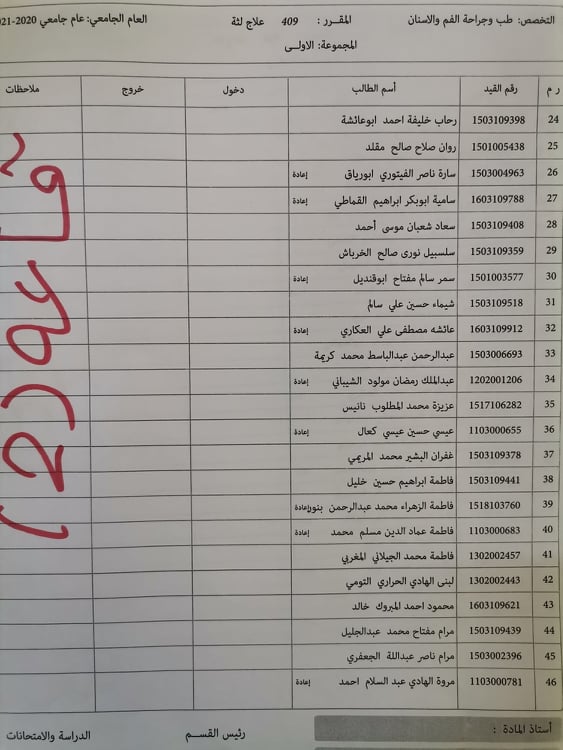 التخصص: طب وجراحة الفم والاسنان المقرر : 409 علاج لثة العام الجامعي: عام جامعي 2020-2021
المجموعة: الاولى
ر م رقم القيد أسم الطالب دخول خروج ملاحظات
24 1503109398 رحاب خليفة احمد ابوعائشة
25 1501005438 روان صلاح صالح مقلد
26 1503004963 سارة ناصر الفيتوري ابورياق إعادة
27 1603109788 سامية ابوبكر ابراهيم القماطي إعادة
28 1503109408 سعاد شعبان موسى أحمد
29 1503109359 سلسبيل نورى صالح الخرباش
30 1501003577 سمر سالم مفتاح ابوقنديل إعادة
31 1503109518 شيماء حسين علي سالم
32 1603109912 عائشه مصطفى علي العكاري إعادة
33 1503006693 عبدالرحمن عبدالباسط محمد كريمة
34 1202001206 عبدالملك رمضان مولود الشيباني إعادة
35 1517106282 عزيزة محمد المطلوب نانيس
36 1103000655 عيسي حسين عيسي كعال إعادة
37 1503109378 غفران البشير محمد المريمي
38 1503109441 فاطمة ابراهيم حسين خليل
39 1518103760 فاطمة الزهراء محمد عبدالرحمن بنور إعادة
40 1103000683 فاطمة عماد الدين مسلم محمد إعادة
41 1302002457 فاطمة محمد الجيلاني المغربي
42 1302002443 لبنى الهادي الحراري التومي
43 1603109621 محمود احمد المبروك خالد
44 1503109439 مرام مفتاح محمد عبدالجليل
45 1503002396 مرام ناصر عبداللة الجعفري
46 1103000781 مروة الهادي عبد السلام احمد إعادة
قاعة (2)
أستاذ المادة : رئيس القسم الدراسة والامتحانات